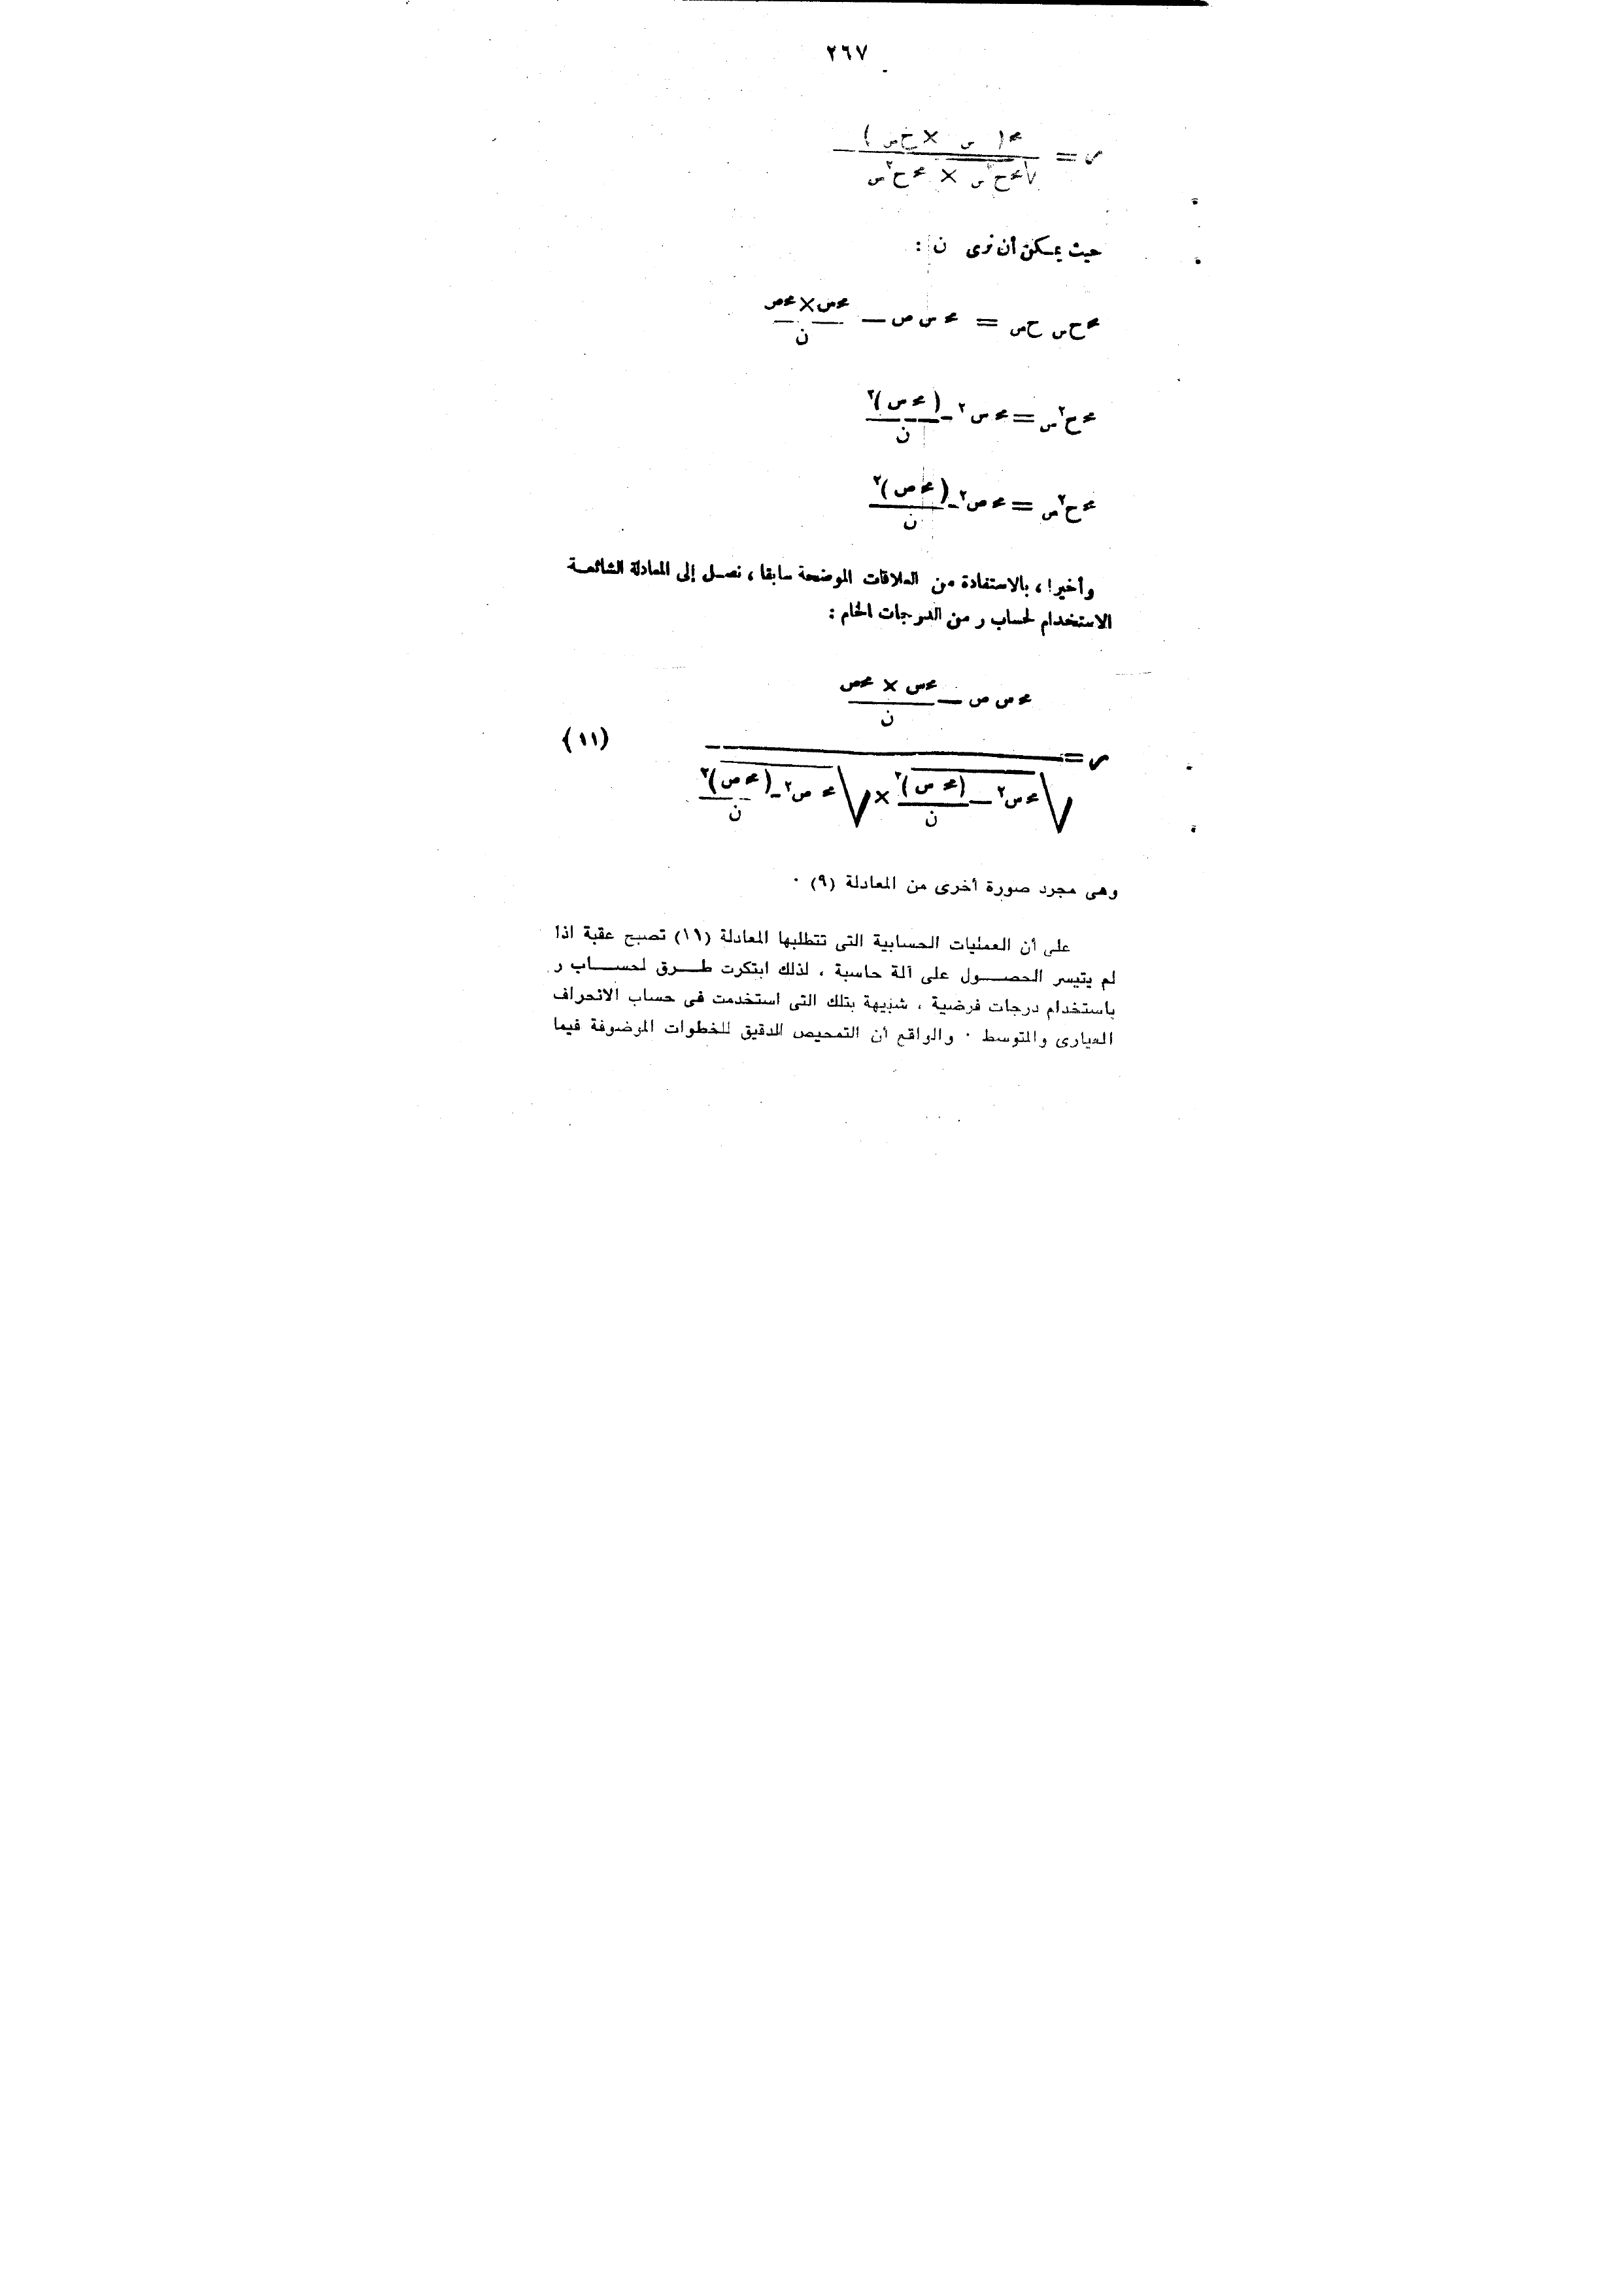 ٢٦٧
ر = مح ( س × ح ص )
√ مح ح٢ س × مح ح٢ ص
حيث يمكن أن نرى ن :
مح ح س ح ص = مح س ص — مح س × مح ص
ن
مح ح٢ س = مح س٢ - ( مح س )٢
ن
مح ح٢ ص = مح ص٢ - ( مح ص )٢
ن
وأخيرا ، بالاستفادة من العلاقات الموضحة سابقا ، نصل إلى المعادلة الشائعة
الاستخدام لحساب ر من الدرجات الخام :
مح س ص — مح س × مح ص
ن
ر = (١١)
√ مح س٢ — ( مح س )٢ × √ مح ص٢ - ( مح ص )٢
ن ن
وهى مجرد صورة أخرى من المعادلة (٩) ٠
على أن العمليات الحسابية التى تتطلبها المعادلة (١١) تصبح عقبة اذا
لم يتيسر الحصول على آلة حاسبة ، لذلك ابتكرت طرق لحساب ر
باستخدام درجات فرضية ، شبيهة بتلك التى استخدمت فى حساب الانحراف
العيارى والمتوسط ٠ والواقع أن التمحيص الدقيق للخطوات الموضوفة فيما